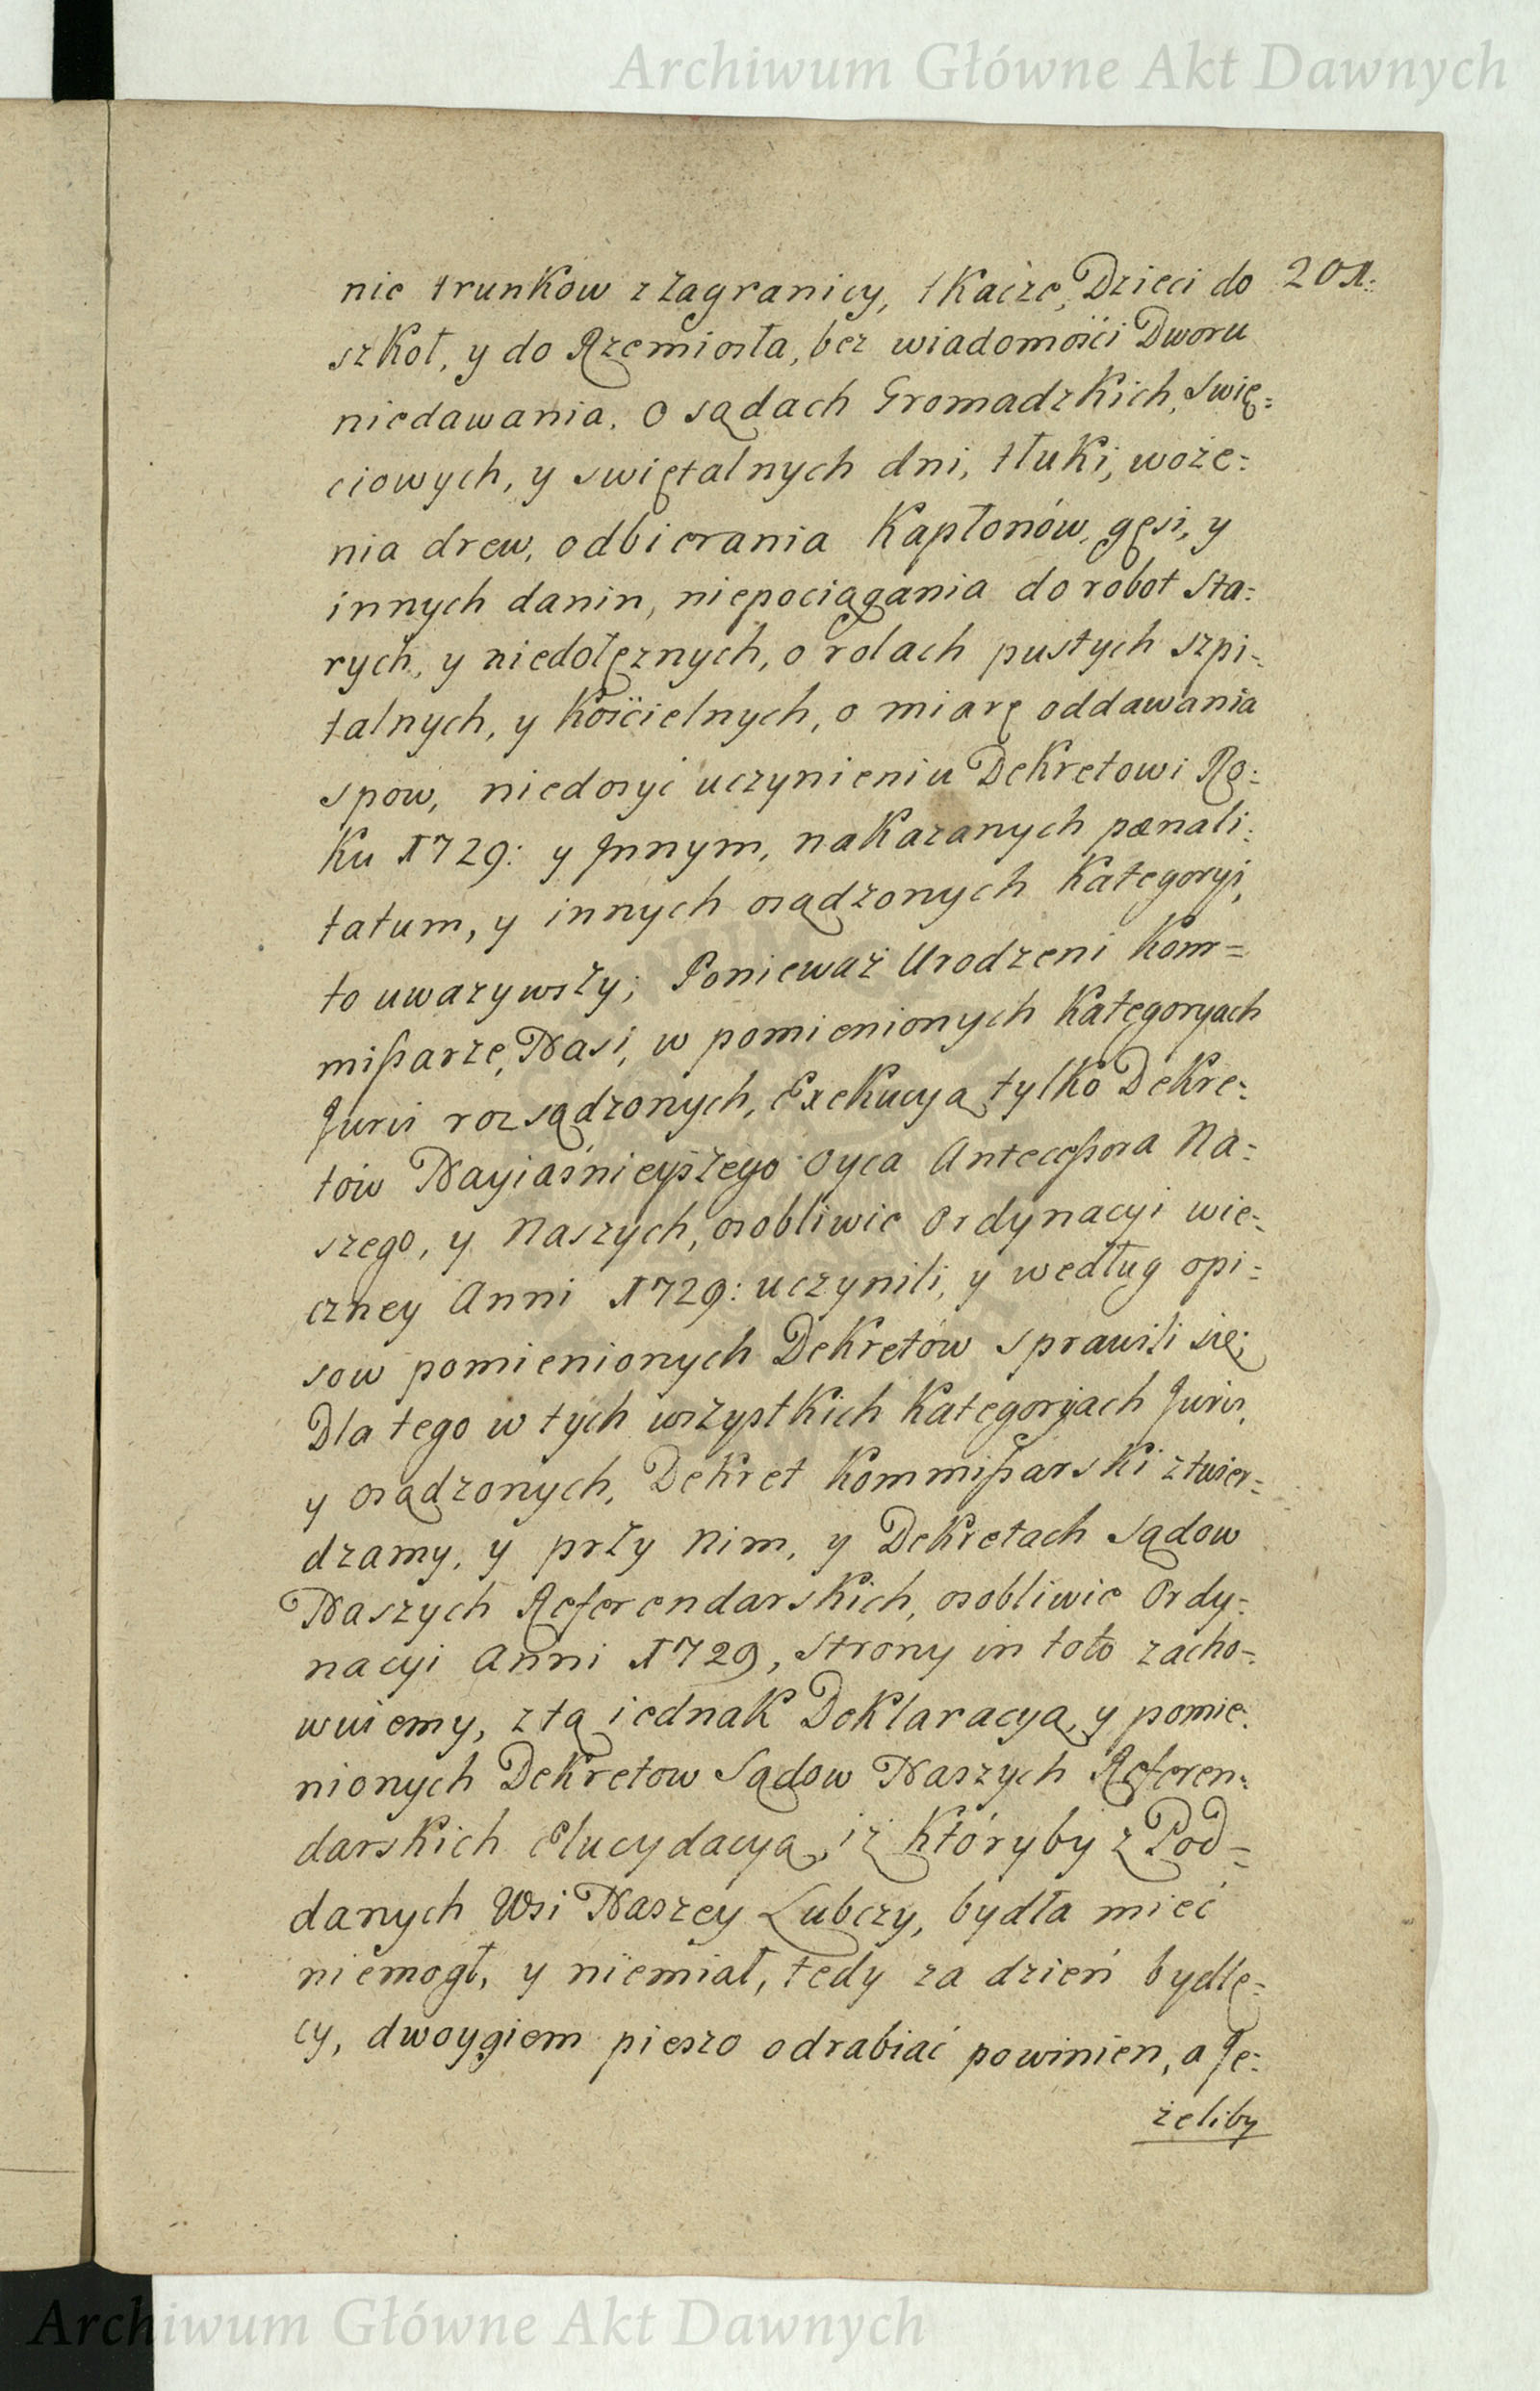 Archiwum Główne Akt Dawnych
201.
nie trunkow z zagranicy, tkacze, Dzieci do
szkoł, y do Rzemiosła, bez wiadomości Dworu
niedawania. o sądach Gromadzkich, Swię=
ciowych, y swiętalnych dni, tłuki, woże=
nia drew, odbierania Kapłonów, gęsi, y
innych danin, niepociągania do robot sta=
rych, y niedołęznych, o rolach pustych szpi=
talnych, y kościelnych, o miarę oddawania
spow, niedosyć uczynieniu Dekretowi Ro=
ku 1729: y Jnnym, nakazanych pænali=
tatum, y innych osądzonych Kategoryi,
to uwazywszy; Ponieważ Urodzeni Kom=
mißarze, Nasi, w pomienionych Kategoryach
Juris rozsądzonych, Exekucyą tylko Dekre=
tów Nayiaśnieyszego Oyca Antecessora Na=
szego, y Naszych, osobliwie Ordynacyi wie=
czney Anni 1729: uczynili, y według opi=
sow pomienionych Dekretów sprawili się;
Dla tego w tych wszystkich Kategoryach Juris,
y osądzonych, Dekret Kommißarski ztwier=
dzamy, y przy nim, y Dekretach Sądow
Naszych Referendarskich, osobliwie Ordy=
nacyi Anni 1729, Strony in toto zacho=
wuiemy, z tą iednak Deklaracyą, y pomie=
nionych Dekretow Sądow Naszych Referen=
darskich Elucydacyą, iż któryby z Pod=
danych Wsi Naszey Lubczy, bydła mieć
niemogł, y niemiał, tedy za dzień bydlę=
cy, dwoygiem pieszo odrabiać powinien, a Je=
żeliby
Archiwum Główne Akt Dawnych